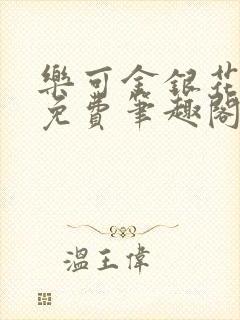 樂可金銀花
免費筆趣閣
溫王偉